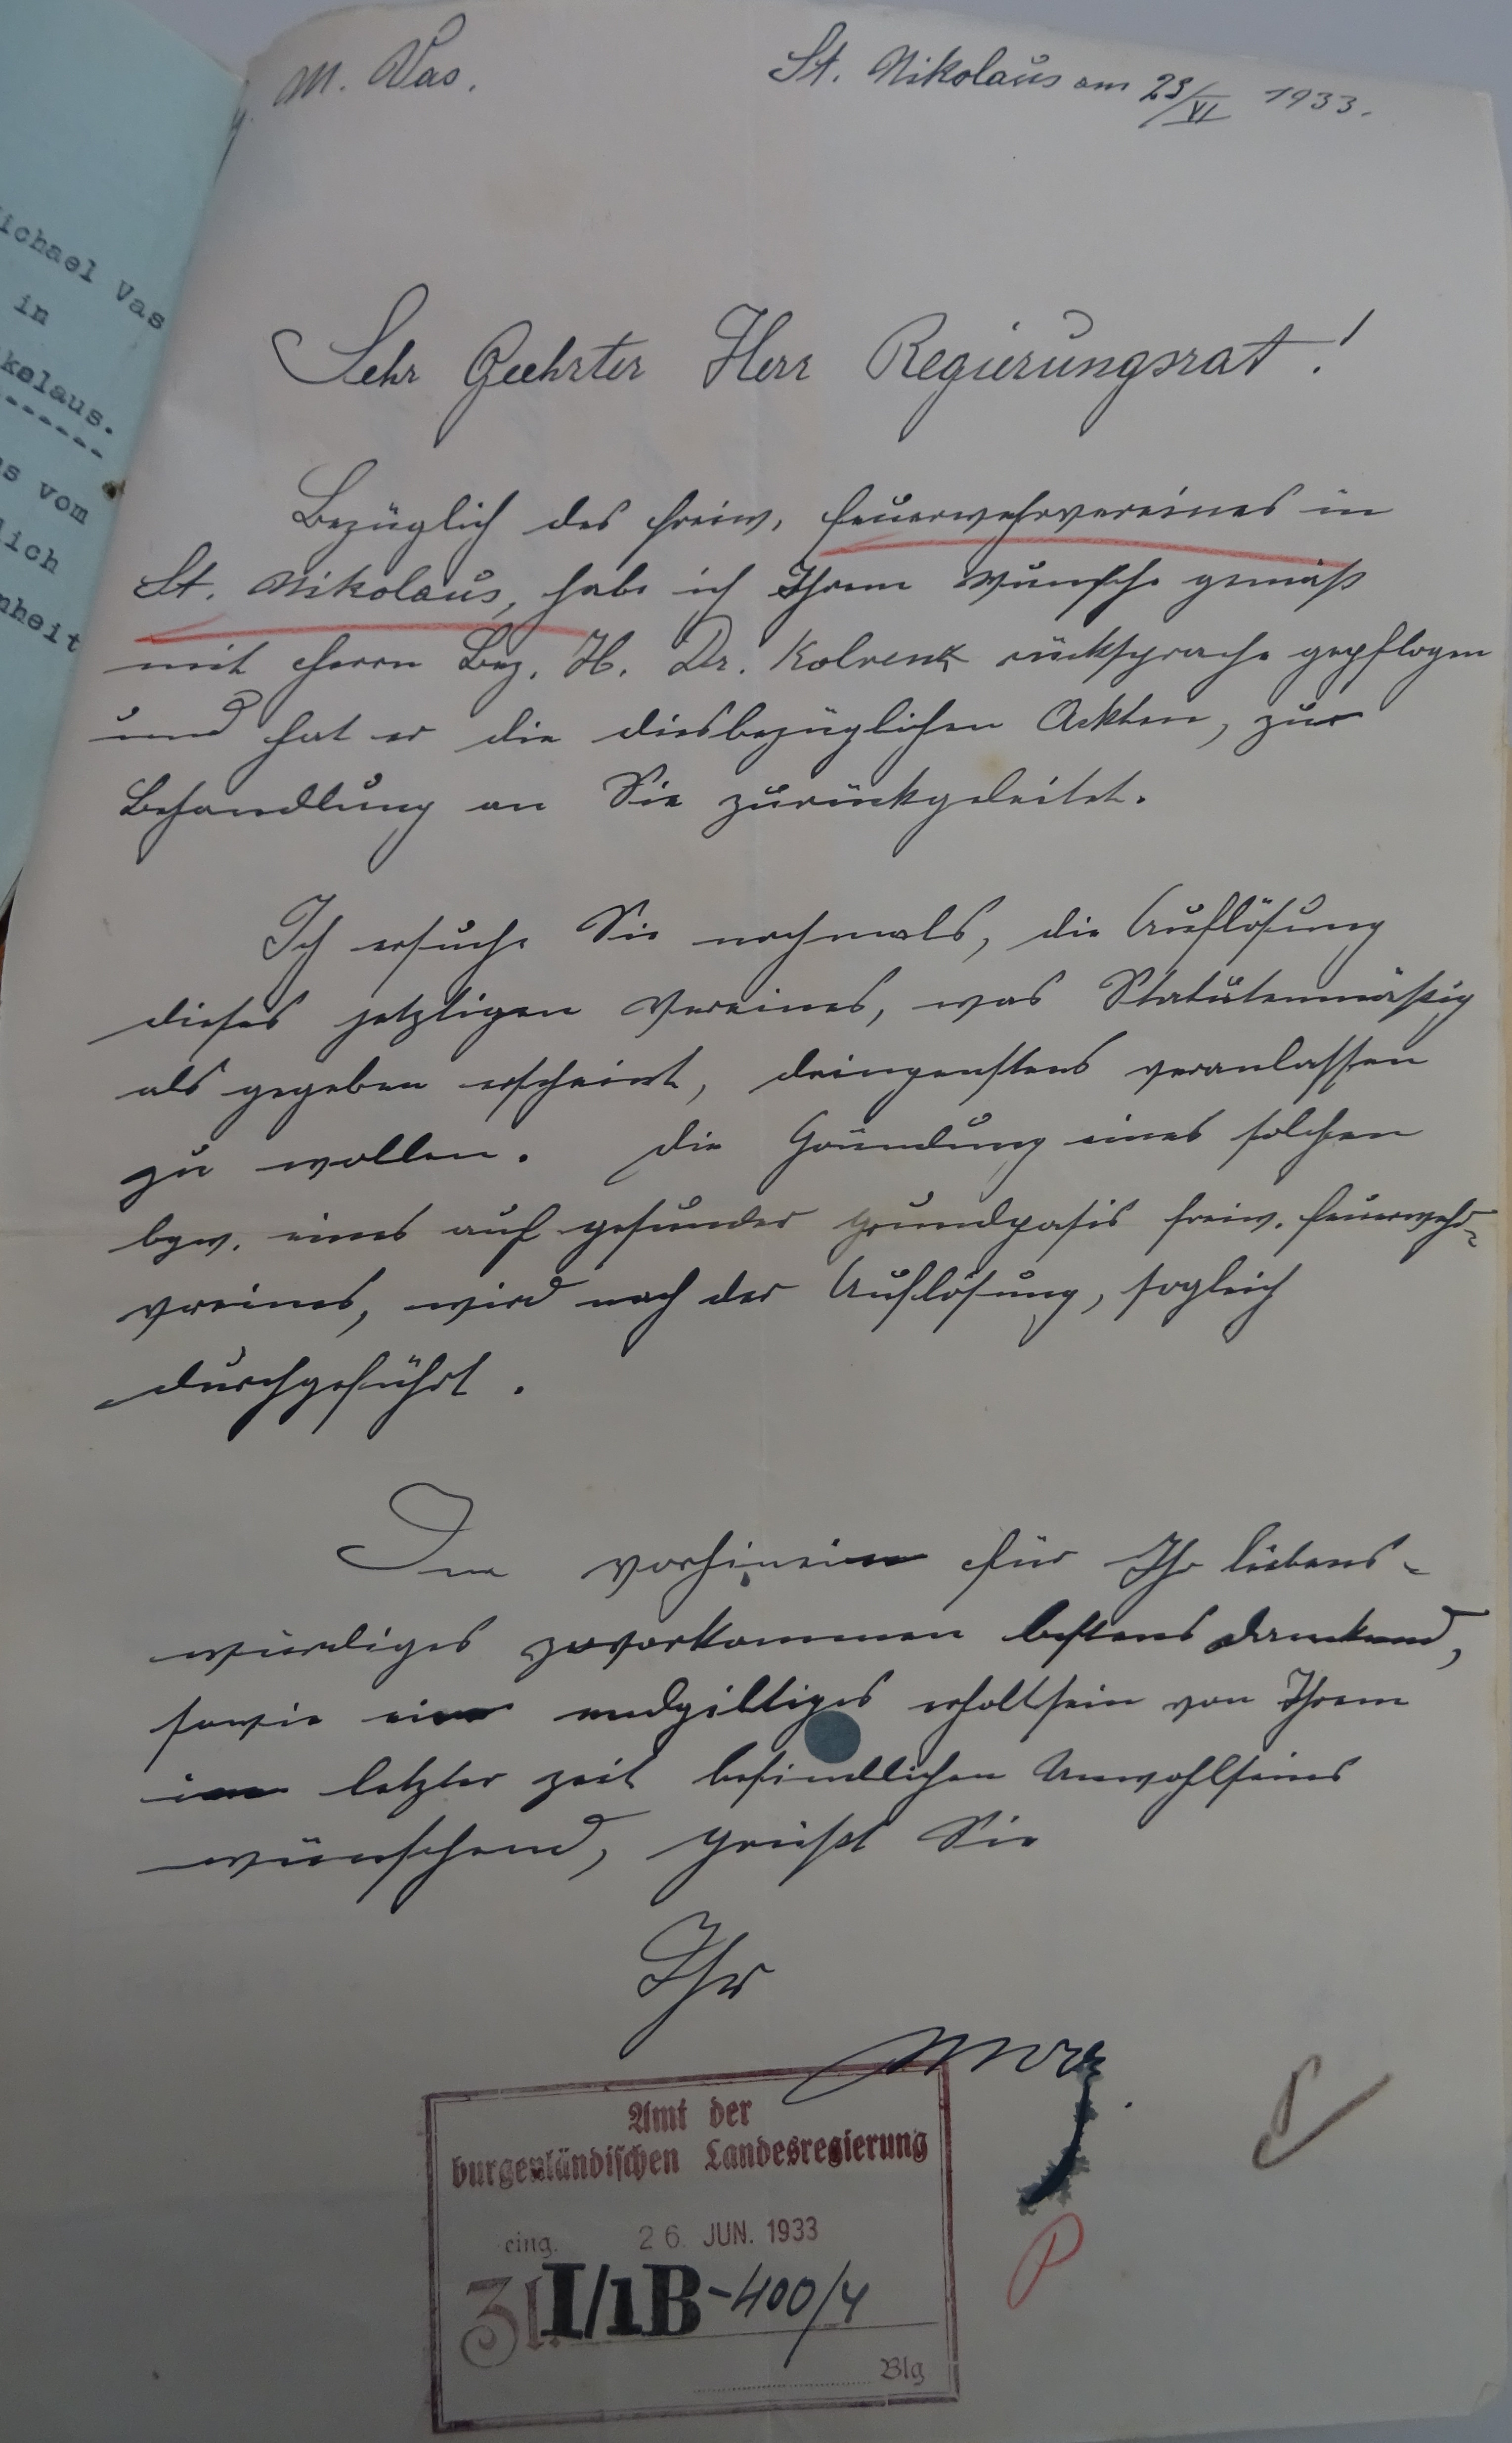 M. Vas.
St. Nikolaus am 23/VI 1933.
Sehr Geehrter Herr Regierungsrat!
Bezüglich des freiw. Feuerwehrvereines in
St. Nikolaus, habe ich Ihrem Wunsche gemäß
mit Herrn Bez. H. Dr. rücksprache gepflogen
und hat er die diesbezüglichen Ackten, zur
Behandlung an Sie zurückgeleitet.
Ich ersuche Sie nochmals, die Auflösung
dieses jetztigen Vereines, was Statutenmäßig
als gegeben erscheint, dringenstens veranlassen
zu wollen. Die Gründung eines solchen
bzw. eines auf gesunder grundpasis freiw. Feuerwehr-
vereines, wird nach der Auflösung, sogleich
durchgeführt.
Im vorhinein für Ihr liebens-
würdiges zuvorkommen bestens dankend,
sowie ein endgiltiges erholtsein von Ihrem
in letzter zeit befindlichen Unwohlseins
wünschend, grüßt Sie
Ihr
Amt der
burgenländischen Landesregierung
eing. 26. JUN. 1933
Zl. I/1B-400/4
Blg
P
ichael Vas
in
kolaus.
s vom
lich
nheit